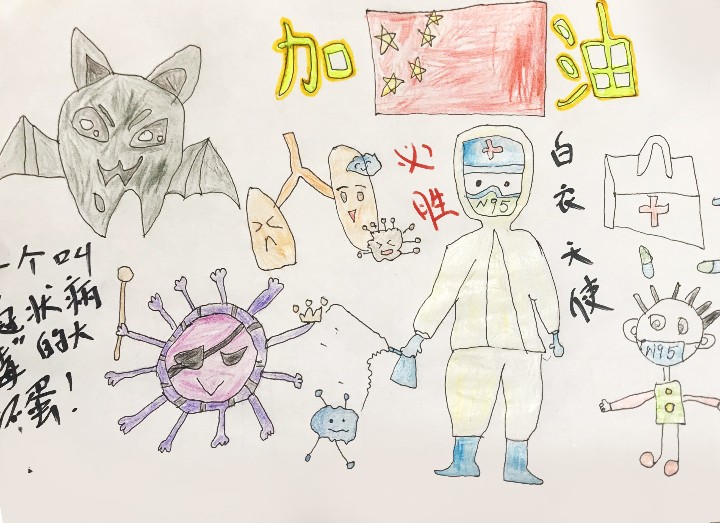 加油
必胜
白衣天使
N95
一个叫
状病
毒”的大
蛋！
N95